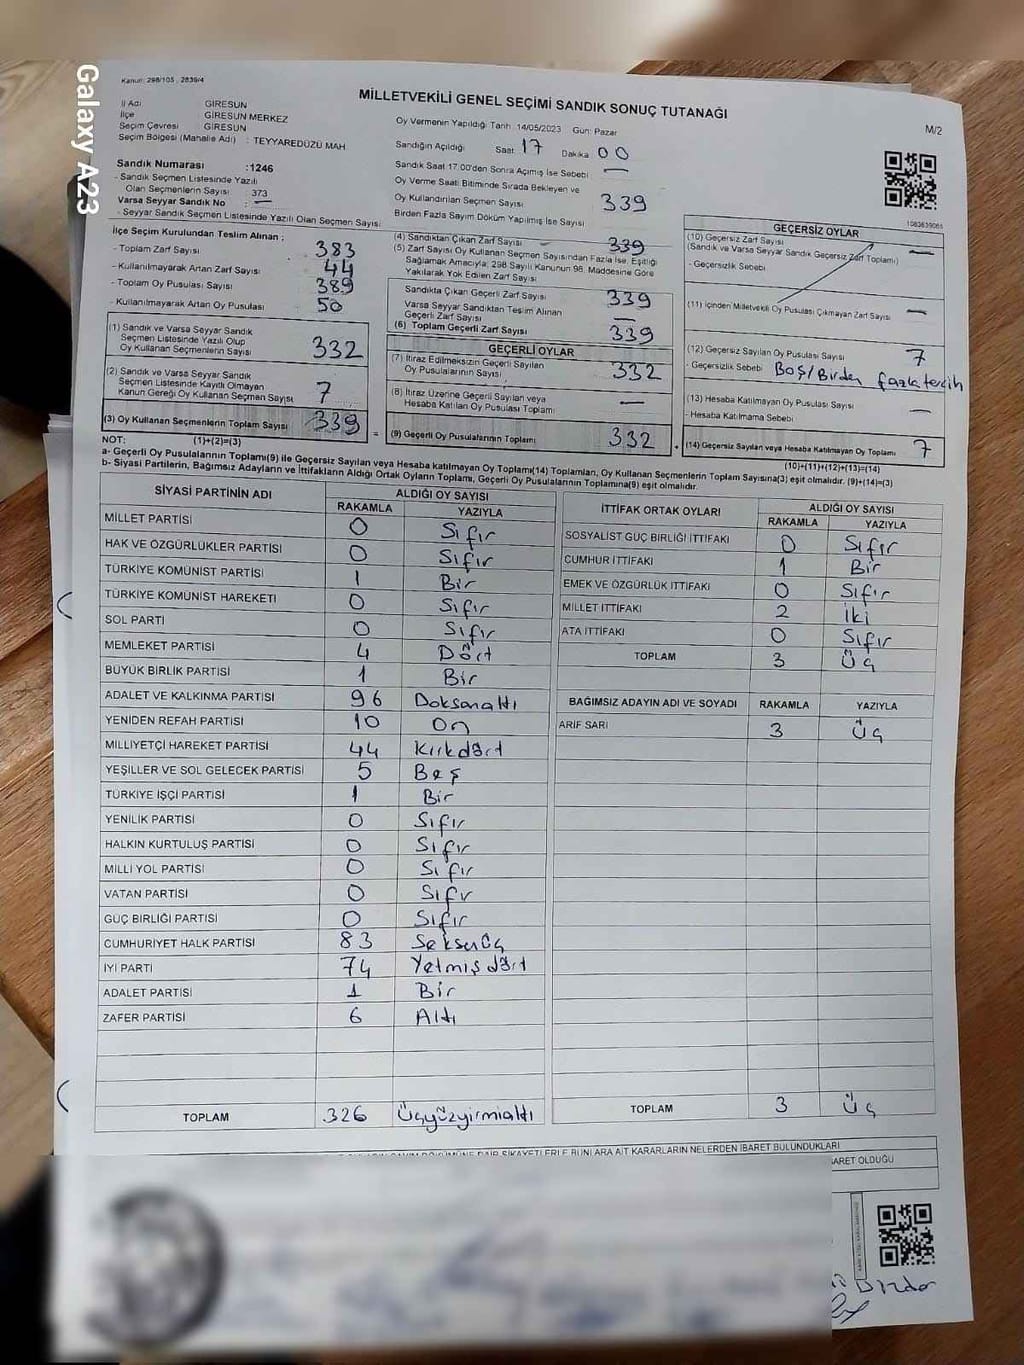 Galaxy A23
Kanun: 298/105 , 2839/4
MİLLETVEKİLİ GENEL SEÇİMİ SANDIK SONUÇ TUTANAĞI
M/2
İl Adı GİRESUN
İlçe GİRESUN MERKEZ
Seçim Çevresi GİRESUN
Seçim Bölgesi (Mahalle Adı) : TEYYAREDÜZÜ MAH.
Sandık Numarası :1246
- Sandık Seçmen Listesinde Yazılı
Olan Seçmenlerin Sayısı : 373
Varsa Seyyar Sandık No : —
- Seyyar Sandık Seçmen Listesinde Yazılı Olan Seçmen Sayısı:
Oy Vermenin Yapıldığı Tarih :14/05/2023 Gün: Pazar
Sandığın Açıldığı Saat: 17 Dakika 00
Sandık Saat 17:00'den Sonra Açımış İse Sebebi —
Oy Verme Saati Bitiminde Sırada Bekleyen ve
Oy Kullandırılan Seçmen Sayısı 339
Birden Fazla Sayım Döküm Yapılmış İse Sayısı
1083639065
İlçe Seçim Kurulundan Teslim Alınan :
- Toplam Zarf Sayısı 383
- Kullanılmayarak Artan Zarf Sayısı 44
- Toplam Oy Pusulası Sayısı 389
- Kullanılmayarak Artan Oy Pusulası 50
(1) Sandık ve Varsa Seyyar Sandık
Seçmen Listesinde Yazılı Olup
Oy Kullanan Seçmenlerin Sayısı 332
(2) Sandık ve Varsa Seyyar Sandık
Seçmen Listesinde Kayıtlı Olmayan
Kanun Gereği Oy Kullanan Seçmen Sayısı 7
(3) Oy Kullanan Seçmenlerin Toplam Sayısı 339
(4) Sandıktan Çıkan Zarf Sayısı 339
(5) Zarf Sayısı Oy Kullanan Seçmen Sayısından Fazla İse, Eşitliği
Sağlamak Amacıyla; 298 Sayılı Kanunun 98. Maddesine Göre
Yakılarak Yok Edilen Zarf Sayısı
Sandıkta Çıkan Geçerli Zarf Sayısı 339
Varsa Seyyar Sandıktan Teslim Alınan
Geçerli Zarf Sayısı —
(6) Toplam Geçerli Zarf Sayısı 339
GEÇERLİ OYLAR
(7) İtiraz Edilmeksizin Geçerli Sayılan
Oy Pusulalarının Sayısı 332
(8) İtiraz Üzerine Geçerli Sayılan veya
Hesaba Katılan Oy Pusulası Toplamı —
= (9) Geçerli Oy Pusulalarının Toplamı 332
GEÇERSİZ OYLAR
(10) Geçersiz Zarf Sayısı
(Sandık ve Varsa Seyyar Sandık Geçersiz Zarf Toplamı) —
- Geçersizlik Sebebi
(11) İçinden Milletvekili Oy Pusulası Çıkmayan Zarf Sayısı —
(12) Geçersiz Sayılan Oy Pusulası Sayısı 7
- Geçersizlik Sebebi Boş/Birden fazla tercih
(13) Hesaba Katılmayan Oy Pusulası Sayısı —
- Hesaba Katılmama Sebebi
+ (14) Geçersiz Sayılan veya Hesaba Katılmayan Oy Toplamı 7
NOT: (1)+(2)=(3)
(10)+(11)+(12)+(13)=(14)
a- Geçerli Oy Pusulalarının Toplamı(9) ile Geçersiz Sayılan veya Hesaba katılmayan Oy Toplamı(14) Toplamları, Oy Kullanan Seçmenlerin Toplam Sayısına(3) eşit olmalıdır. (9)+(14)=(3)
b- Siyasi Partilerin, Bağımsız Adayların ve İttifakların Aldığı Ortak Oyların Toplamı, Geçerli Oy Pusulalarının Toplamına(9) eşit olmalıdır.
SİYASİ PARTİNİN ADI ALDIĞI OY SAYISI
RAKAMLA YAZIYLA
MİLLET PARTİSİ 0 Sıfır
HAK VE ÖZGÜRLÜKLER PARTİSİ 0 Sıfır
TÜRKİYE KOMÜNİST PARTİSİ 1 Bir
TÜRKİYE KOMÜNİST HAREKETİ 0 Sıfır
SOL PARTİ 0 Sıfır
MEMLEKET PARTİSİ 4 Dört
BÜYÜK BİRLİK PARTİSİ 1 Bir
ADALET VE KALKINMA PARTİSİ 96 Doksanaltı
YENİDEN REFAH PARTİSİ 10 On
MİLLİYETÇİ HAREKET PARTİSİ 44 Kırkdört
YEŞİLLER VE SOL GELECEK PARTİSİ 5 Beş
TÜRKİYE İŞÇİ PARTİSİ 1 Bir
YENİLİK PARTİSİ 0 Sıfır
HALKIN KURTULUŞ PARTİSİ 0 Sıfır
MİLLİ YOL PARTİSİ 0 Sıfır
VATAN PARTİSİ 0 Sıfır
GÜÇ BİRLİĞİ PARTİSİ 0 Sıfır
CUMHURİYET HALK PARTİSİ 83 Seksenüç
İYİ PARTİ 74 Yetmişdört
ADALET PARTİSİ 1 Bir
ZAFER PARTİSİ 6 Altı
TOPLAM 326 Üçyüzyirmialtı
İTTİFAK ORTAK OYLARI ALDIĞI OY SAYISI
RAKAMLA YAZIYLA
SOSYALİST GÜÇ BİRLİĞİ İTTİFAKI 0 Sıfır
CUMHUR İTTİFAKI 1 Bir
EMEK VE ÖZGÜRLÜK İTTİFAKI 0 Sıfır
MİLLET İTTİFAKI 2 İki
ATA İTTİFAKI 0 Sıfır
TOPLAM 3 Üç
BAĞIMSIZ ADAYIN ADI VE SOYADI RAKAMLA YAZIYLA
ARİF SARI 3 Üç
TOPLAM 3 Üç
DÖKÜMÜNE DAİR ŞİKAYETLERLE BUNLARA AİT KARARLARIN NELERDEN İBARET BULUNDUKLARI
BARET OLDUĞU